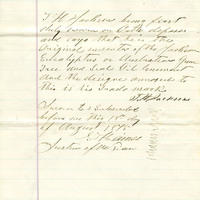 T. H. Jackson being first
duly sworn on Oath deposes
and says that he is the
Original inventor of the Jackson
Eucalyptus or Australian Gum
Tree and Seal Oil Liniment
and the design annexed to
this is his Trade mark
T. H. Jackson
Sworn to & Subscribed
before me this 18 day
of August
Justice of the Peace